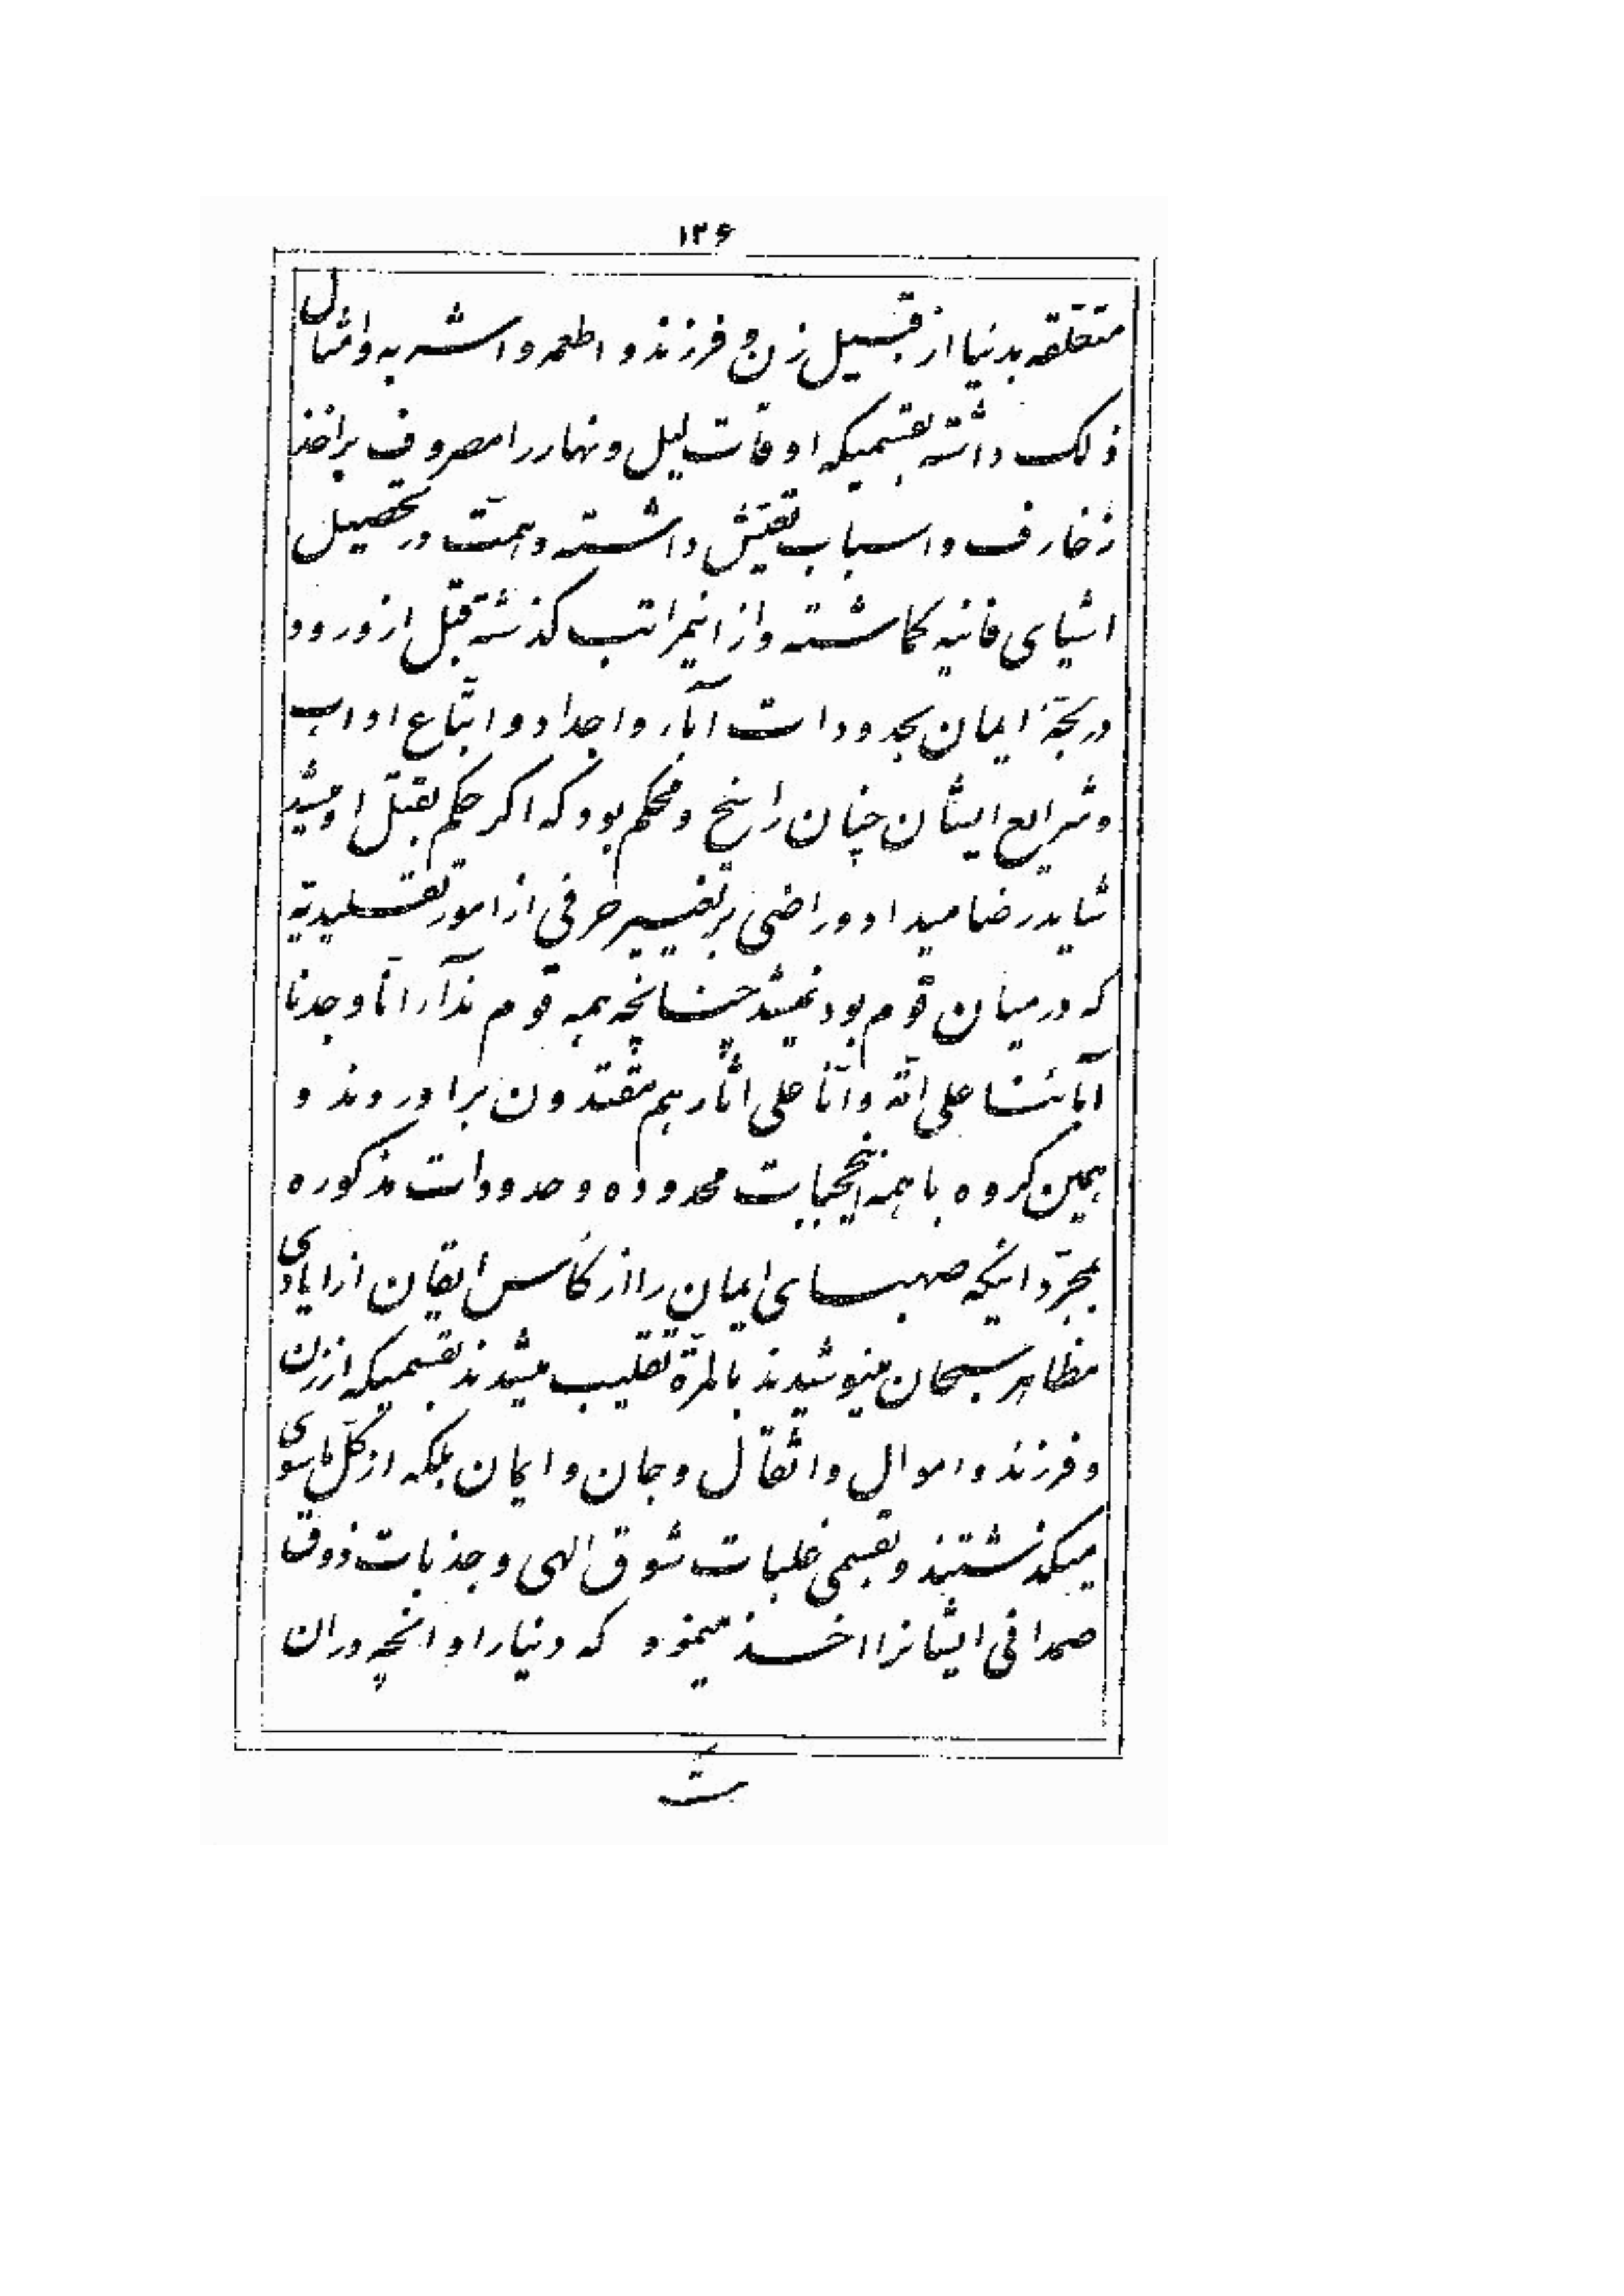 ۱۲۶
متعلّقه بدنیا از قبیل زن و فرزند و اطعمه و اشربه و امثال
ذلک داشته بقسمیکه اوقات لیل و نهار را مصروف بر اخذ
زخارف و اسباب تعیّش داشته و همّت در تحصیل
اشیای فانیه کماشته و از اینمراتب کذشته قبل از ورود
در لجّهٴ ایمان بحدودات آباء و اجداد و اتّباع اداب
و شرایع ایشان چنان راسخ و محکم بود که اکر حکم بقتل او میشد
شاید رضا میداد و راضی بر تغییر حرفی از امور تقلیدیّه
که در میان قوم بود نمیشد چنانچه همه قوم ندآء انّا وجدنا
آبائنا علی امّة و انّا علی اثارهم مقتدون براوردند و
همین کروه با همه اینحجبات محدوده و حدودات مذکوره
بمجرّد اینکه صهبای ایمان را از کأس ایقان از ایادی
مظاهر سبحان مینوشیدند بالمرّة تقلیب میشدند بقسمیکه از زن
و فرزند و اموال و اثقال و جان و ایمان بلکه از کلّ ماسوی
میکذشتند و بقسمی غلبات شوق الهی و جذبات ذوق
صمدانی ایشانرا اخذ مینمود که دنیا را و انچه در ان